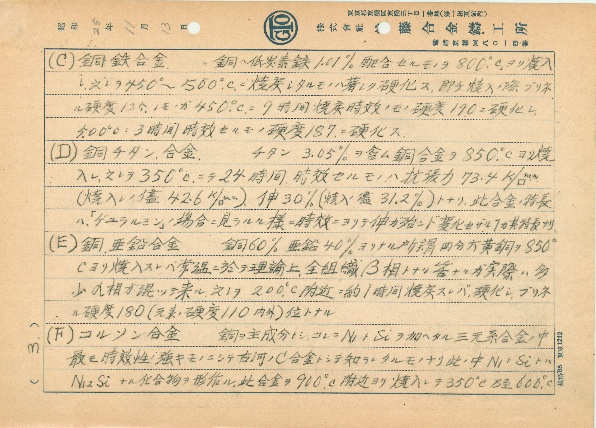 昭和25年11月13日
株式会社 藤合金鑄工所
(C) 銅鉄合金 銅へ低炭素鉄1.01%配合セルモノヲ800℃ヨリ焼入
シ之レヲ450〜500℃ニ焼戻シタルモノハ著シク硬化ス、即チ焼入ノ際ブリネ
ル硬度122ノモノガ450℃ニ9時間焼戻時效ノモノ硬度190ニ硬化シ
500℃ニ3時間時效セルモノ硬度187ニ硬化ス
(D) 銅チタン合金 チタン3.05%ヲ含ム銅合金ヲ850℃ヨリ焼
入シ之レヲ350℃ニテ24時間時效セルモノハ抗張力73.4K/□mm
(焼入レノ儘42.6K/□mm) 伸30%(焼入ノ儘31.2%)トナリ、此合金ノ特長
ハ「ヂュラルミン」ノ場合ニ見ラルル様ニ時效ニヨリテ伸ガ殆ンド変化セザル
(E) 銅亜鉛合金 銅60%亜鉛40%ヨリナル所謂四分六黄銅ヲ850°
Cヨリ焼入スレバ常温ニ於テ理論上全組織β相トナル筈ナルガ実際ハ多
少α相ガ混ッテ来ル之レヲ200℃附近ニ約1時間焼戻スレバ硬化シブリネ
ル硬度180(元来硬度110内外)位トナル
(F) コルソン合金 銅ヲ主成分トシコレニNiトSiヲ加ヘタル三元系合金ノ中
最モ時效性ノ強キモノニシテ古河ノC合金トシテ知ラレタルモノナリ此ノ中NiトSiトハ
Ni2Siナル化合物ヲ形作ル、此合金ヲ900℃附近ヨリ焼入シテ350℃乃至600℃
(3)